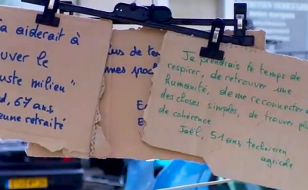 aiderait à
uver le
uste milieu"
d, 67 ans
eune retraité
us de te
mes proc
E
E
Je prendrais le temps de
respirer, de retrouver une
humanité, de me reconnecter
des choses simples, de trouver
de cohérence
Joël, 51 ans technicien
agricole